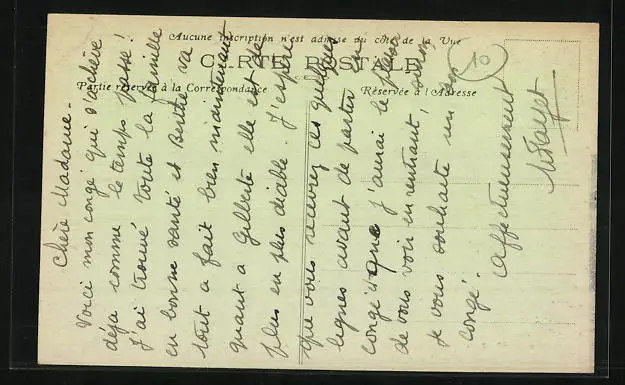 Aucune inscription n'est admise du côté de la Vue
CARTE POSTALE
Partie réservée à la Correspondance
Réservée à l'Adresse
10
Chère Madame.
Voici mon congé qui s'achève
déjà comme le temps passe!
J'ai trouvé toute la famille
en bonne santé et Berthe va
tout a fait bien maintenant
quant a Gilberte elle est de
plus en plus diable. J'espère
que vous recevrez ces quelques
lignes avant de partir en
congé et que j'aurai le plaisir
de vous voir en rentrant, sinon
je vous souhaite un bon
congé.
affectueusement